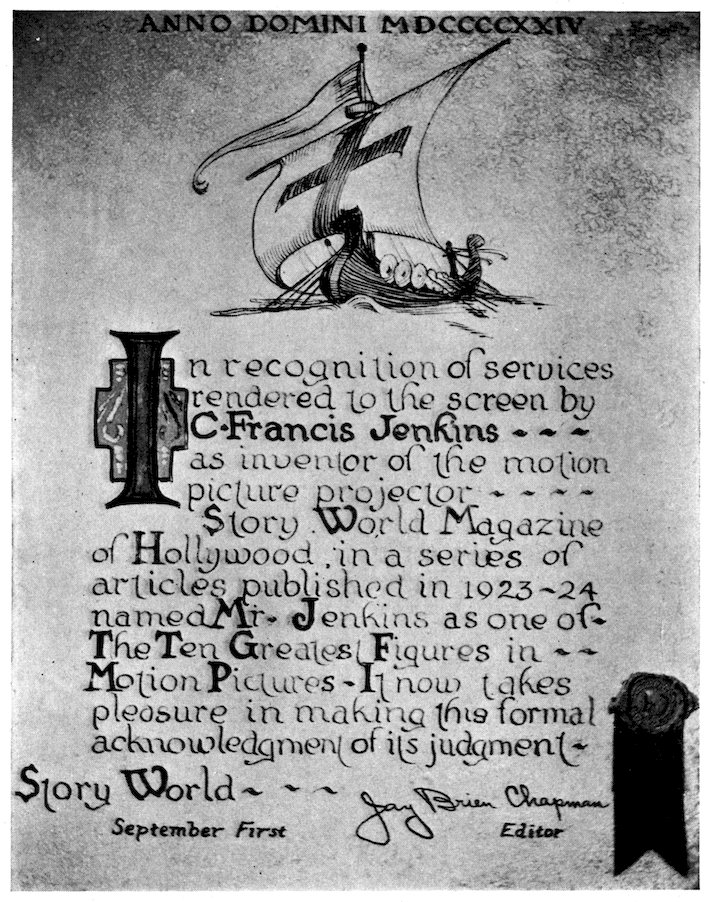 ANNO DOMINI MDCCCCXXIV
In recognition of services
rendered to the screen by
C. Francis Jenkins ~ ~ ~
as inventor of the motion
picture projector ~ ~ ~ ~
Story World Magazine
of Hollywood, in a series of
articles published in 1923-24
named Mr. Jenkins as one of~
The Ten Greatest Figures in ~~
Motion Pictures ~ It now takes
pleasure in making this formal
acknowledgment of its judgment~
Story World ~ ~ ~ ~
Jay Brien Chapman
September First Editor